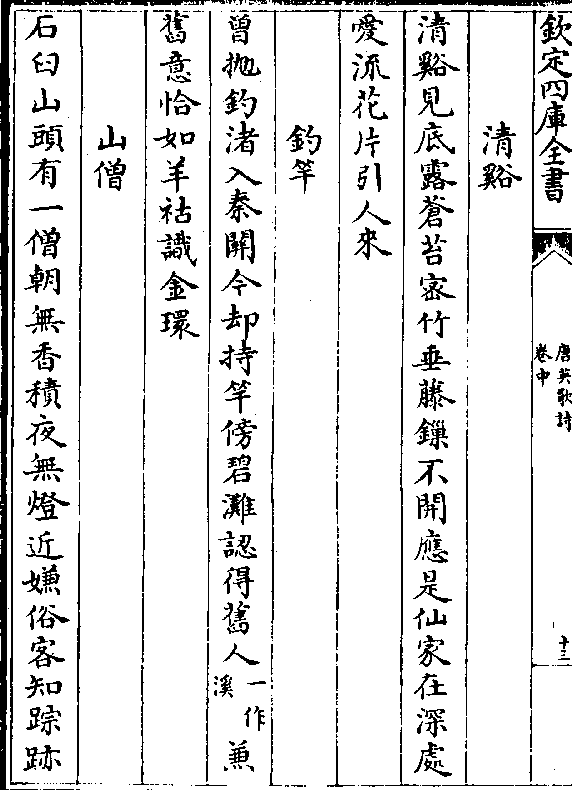 欽定四庫全書
唐英歌詩
卷中
十三
清谿
清谿見底露蒼苔宻竹垂藤鏁不開應是仙家在深處
愛流花片引人來
釣竿
曽抛釣渚入秦關今却持竿傍碧灘認得舊人一作溪兼
舊意恰如羊祜識金環
山僧
石臼山頭有一僧朝無香積夜無燈近嫌俗客知踪跡